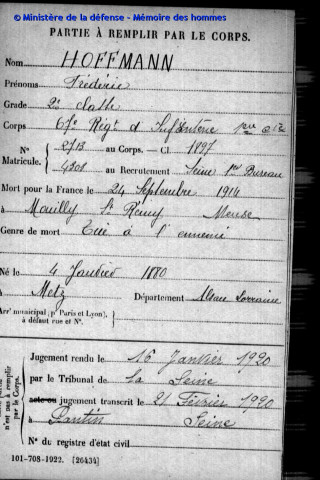 © Ministère de la défense - Mémoire des hommes
PARTIE À REMPLIR PAR LE CORPS.
Nom HOFFMANN
Prénoms Frédéric
Grade 2e classe
Corps 67e Régt d'Infanterie
N° 2713 au Corps. — Cl. 1897
Matricule. 4301 au Recrutement Seine 1er Bureau
Mort pour la France le 24 Septembre 1914
à Mouilly St Remy Meuse
Genre de mort Tué à l'ennemi
Né le 4 Janvier 1880
à Metz Département Alsace Lorraine
Arrt municipal (pr Paris et Lyon), à défaut rue et N°.
Jugement rendu le 16 Janvier 1920
par le Tribunal de La Seine
acte ou jugement transcrit le 21 Février 1920
à Pantin Seine
N° du registre d'état civil
n'est pas à remplir par le Corps.
101-708-1922. [26434]